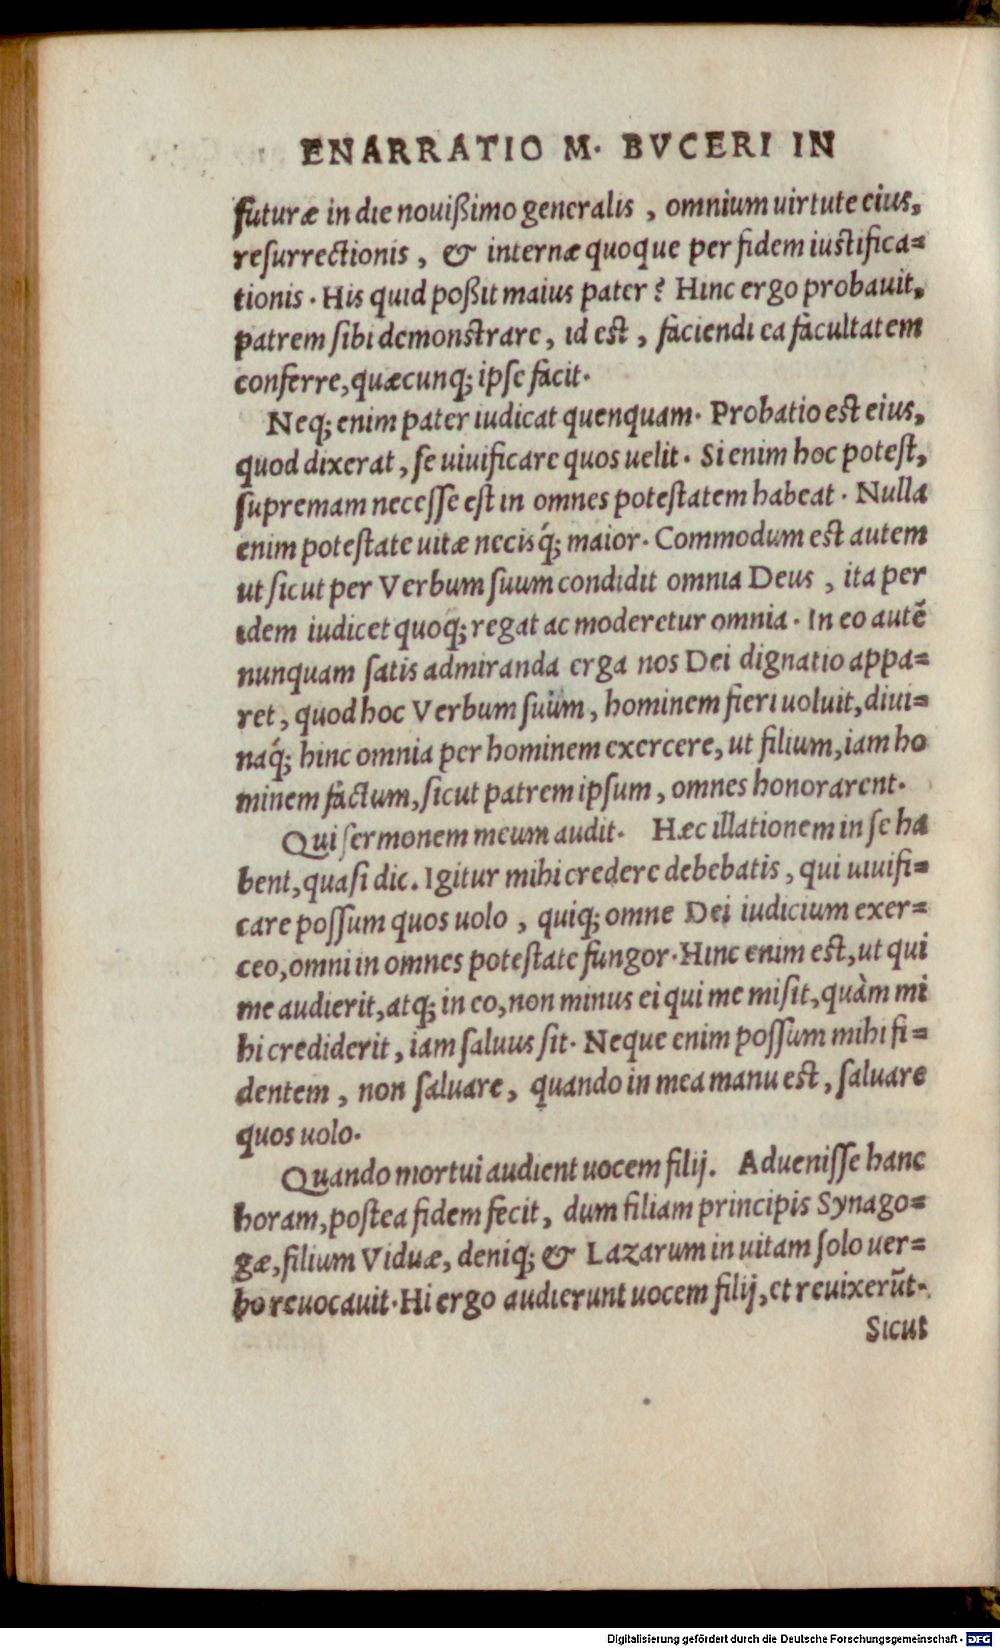 ENARRATIO M. BVCERI IN
futuræ in die nouißimo generalis , omnium uirtute eius,
reſurrectionis , & internæ quoque per fidem iustifica=
tionis . His quid poßit maius pater ? Hinc ergo probauit,
patrem ſibi demonstrare, id est , faciendi ea facultatem
conferre, quæcunq; ipſe facit.
Neq; enim pater iudicat quenquam. Probatio est eius,
quod dixerat , ſe uiuificare quos uelit . Si enim hoc poteſt,
ſupremam neceſſe eſt in omnes poteſtatem habeat . Nulla
enim poteſtate uitæ necisq́; maior. Commodum est autem
ut ſicut per Verbum ſuum condidit omnia Deus , ita per
idem iudicet quoq; regat ac moderetur omnia . In eo autẽ
nunquam ſatis admiranda erga nos Dei dignatio appa=
ret , quod hoc Verbum ſuum , hominem fieri uoluit, diui=
naq́; hinc omnia per hominem exercere, ut filium, iam ho
minem factum, ſicut patrem ipſum , omnes honorarent.
Qui ſermonem meum audit. Hæc illationem in ſe ha
bent, quaſi dic. Igitur mihi credere debebatis , qui uiuifi=
care poſſum quos uolo , quiq; omne Dei iudicium exer=
ceo, omni in omnes poteſtate fungor. Hinc enim est, ut qui
me audierit, atq; in eo, non minus ei qui me miſit, quàm mi
hi crediderit , iam ſaluus ſit. Neque enim poſſum mihi fi=
dentem , non ſaluare , quando in mea manu est , ſaluare
quos uolo.
Quando mortui audient uocem filij. Adueniſſe hanc
horam, poſtea fidem fecit , dum filiam principis Synago=
gæ, filium Viduæ, deniq; & Lazarum in uitam ſolo uer=
bo reuocauit. Hi ergo audierunt uocem filij, et reuixerũt.
Sicut
Digitalisierung gefördert durch die Deutsche Forschungsgemeinschaft - DFG